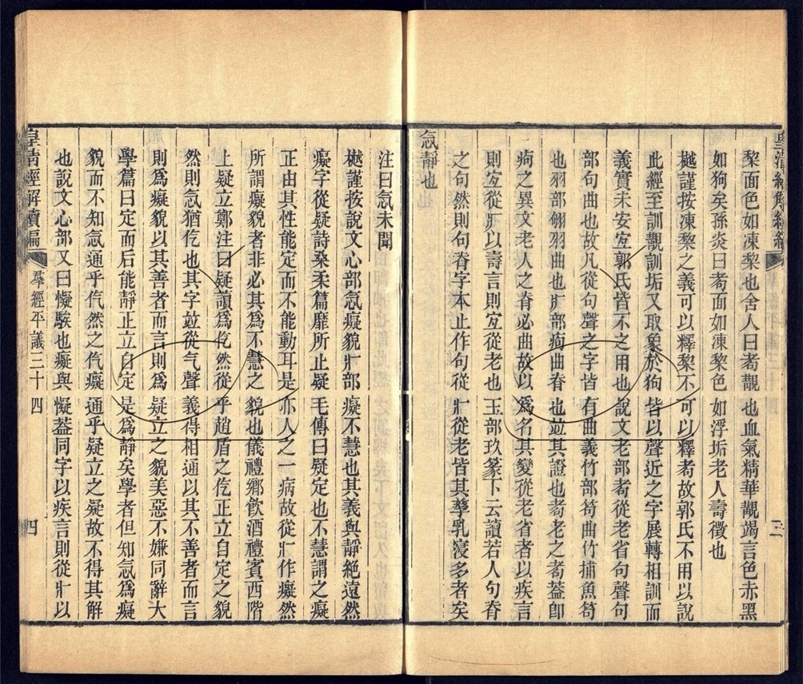 皇清經解續編 三
黎面色如凍黎也舍人曰耇覯也血氣精華覯竭言色赤黑
如狗矣孫炎曰耇面如凍黎色如浮垢老人壽徵也
樾謹按凍黎之義可以釋黎不可以釋耇故郭氏不用以說
此經至訓觀訓垢又取象於狗皆以聲近之字展轉相訓而
義實未安宐郭氏皆不之用也說文老部耇從老省句聲句
部句曲也故凡從句聲之字皆有曲義竹部笱曲竹捕魚笱
也羽部翑羽曲也疒部痀曲脊也竝其證也耇老之耇葢卽
痀之異文老人之脊必曲故以爲名其變從老省者以疾言
則宐從疒以壽言則宐從老也玉部玖篆下云讀若人句脊
之句然則句脊字本止作句從疒從老皆其孳乳寖多者矣
忥靜也
注曰忥未聞
樾謹按說文心部忥癡貌疒部癡不慧也其義與靜絕遠然
癡字從疑詩桑柔篇靡所止疑毛傳曰疑定也不慧謂之癡
正由其性能定而不能動耳是亦人之一病故從疒作癡然
所謂癡貌者非必其爲不慧之貌也儀禮鄉飲酒禮賓西階
上疑立鄭注曰疑讀爲仡然從乎趙盾之仡正立自定之貌
然則忥猶仡也其字竝從气聲義得相通以其不善者而言
則爲癡貌以其善者而言則爲疑立之貌美惡不嫌同辭大
學篇曰定而后能靜正立自定是爲靜矣學者但知忥爲癡
貌而不知忥通乎仡然之仡癡通乎疑立之疑故不得其解
也說文心部又曰懝騃也癡與懝葢同字以疾言則從疒以
皇清經解續編 羣經平議三十四 四